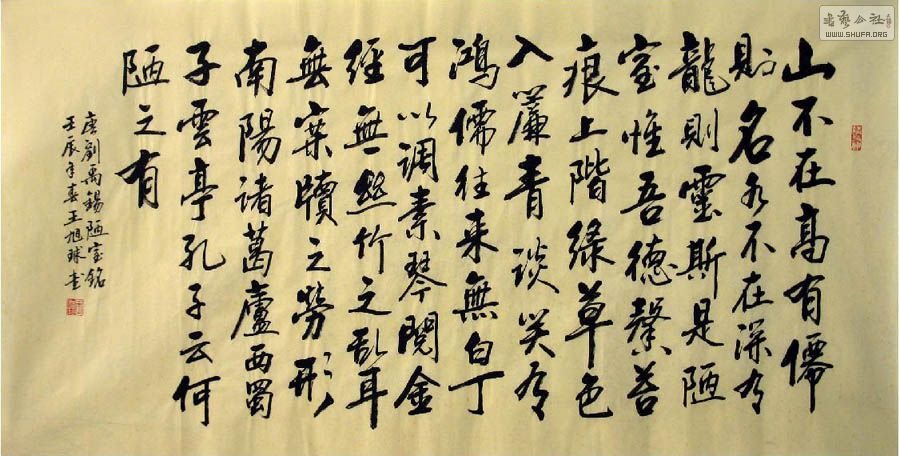 山不在高有僊
則名水不在深有
龍則靈斯是陋
室惟吾德馨苔
痕上階綠草色
入簾青談笑有
鴻儒往来無白丁
可以调素琴閱金
經無丝竹之乱耳
無案牘之勞形
南陽诸葛廬西蜀
子雲亭孔子云何
陋之有
唐劉禹錫陋室銘
壬辰年春王旭球书
书艺公社
WWW.SHUFA.ORG